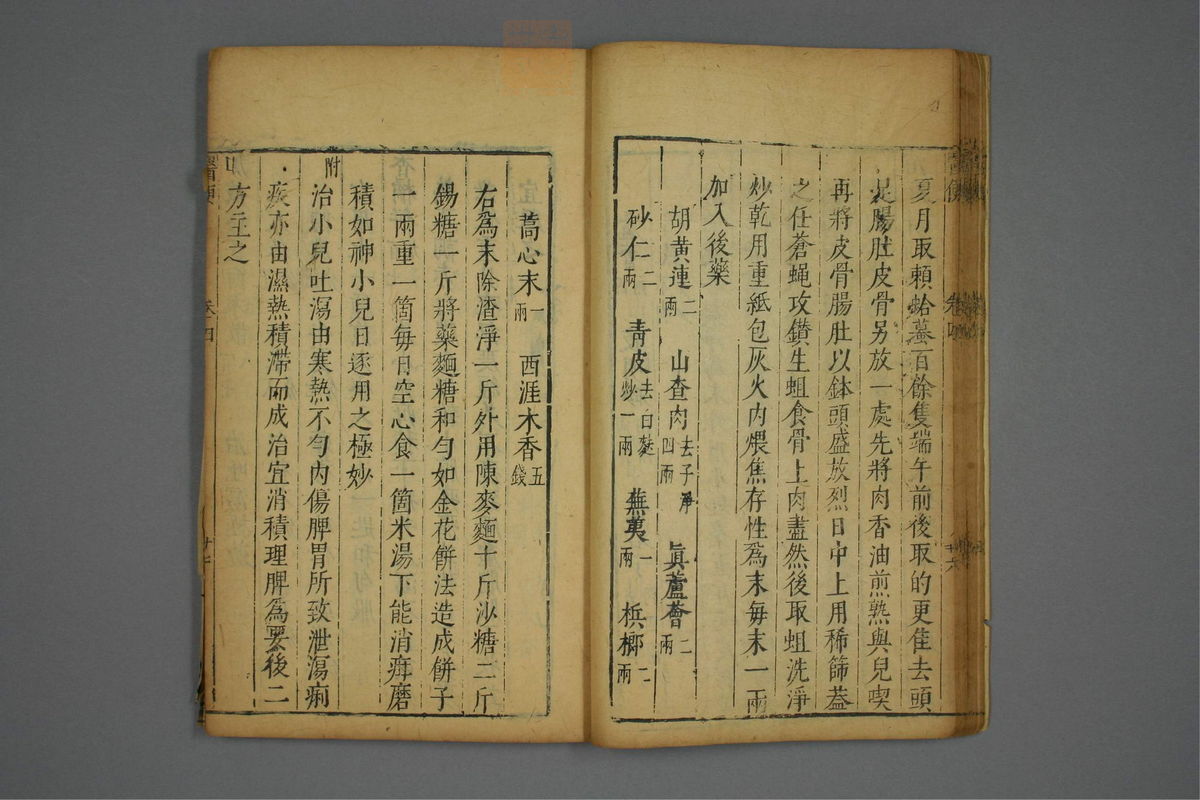 夏月取賴蛤蟇百餘隻端午前後取的更佳去頭
足腸肚皮骨另放一處先將肉香油煎熟與兒喫
再將皮骨腸肚以鉢頭盛放烈日中上用稀篩蓋
之任蒼蝇攻鑚生蛆食骨上肉盡然後取蛆洗淨
炒乾用重紙包灰火内煨焦存性爲末每末一兩
加入後藥
胡黃連二兩 山查肉去子淨四兩 眞蘆薈二兩
砂仁二兩 靑皮去白麩炒一兩 蕪荑一兩 梹榔二兩
蒿心末一兩 西涯木香五錢
右爲末除渣淨一斤外用陳麥麵十斤沙糖二斤
錫糖一斤將藥麵糖和勻如金花餅法造成餅子
一兩重一箇每日空心食一箇米湯下能消痞磨
積如神小兒日逐用之極妙
附治小兒吐瀉由寒熱不勻内傷脾胃所致泄瀉痢
疾亦由濕熱積滯而成治宜消積理脾爲要後二
方主之
卷四